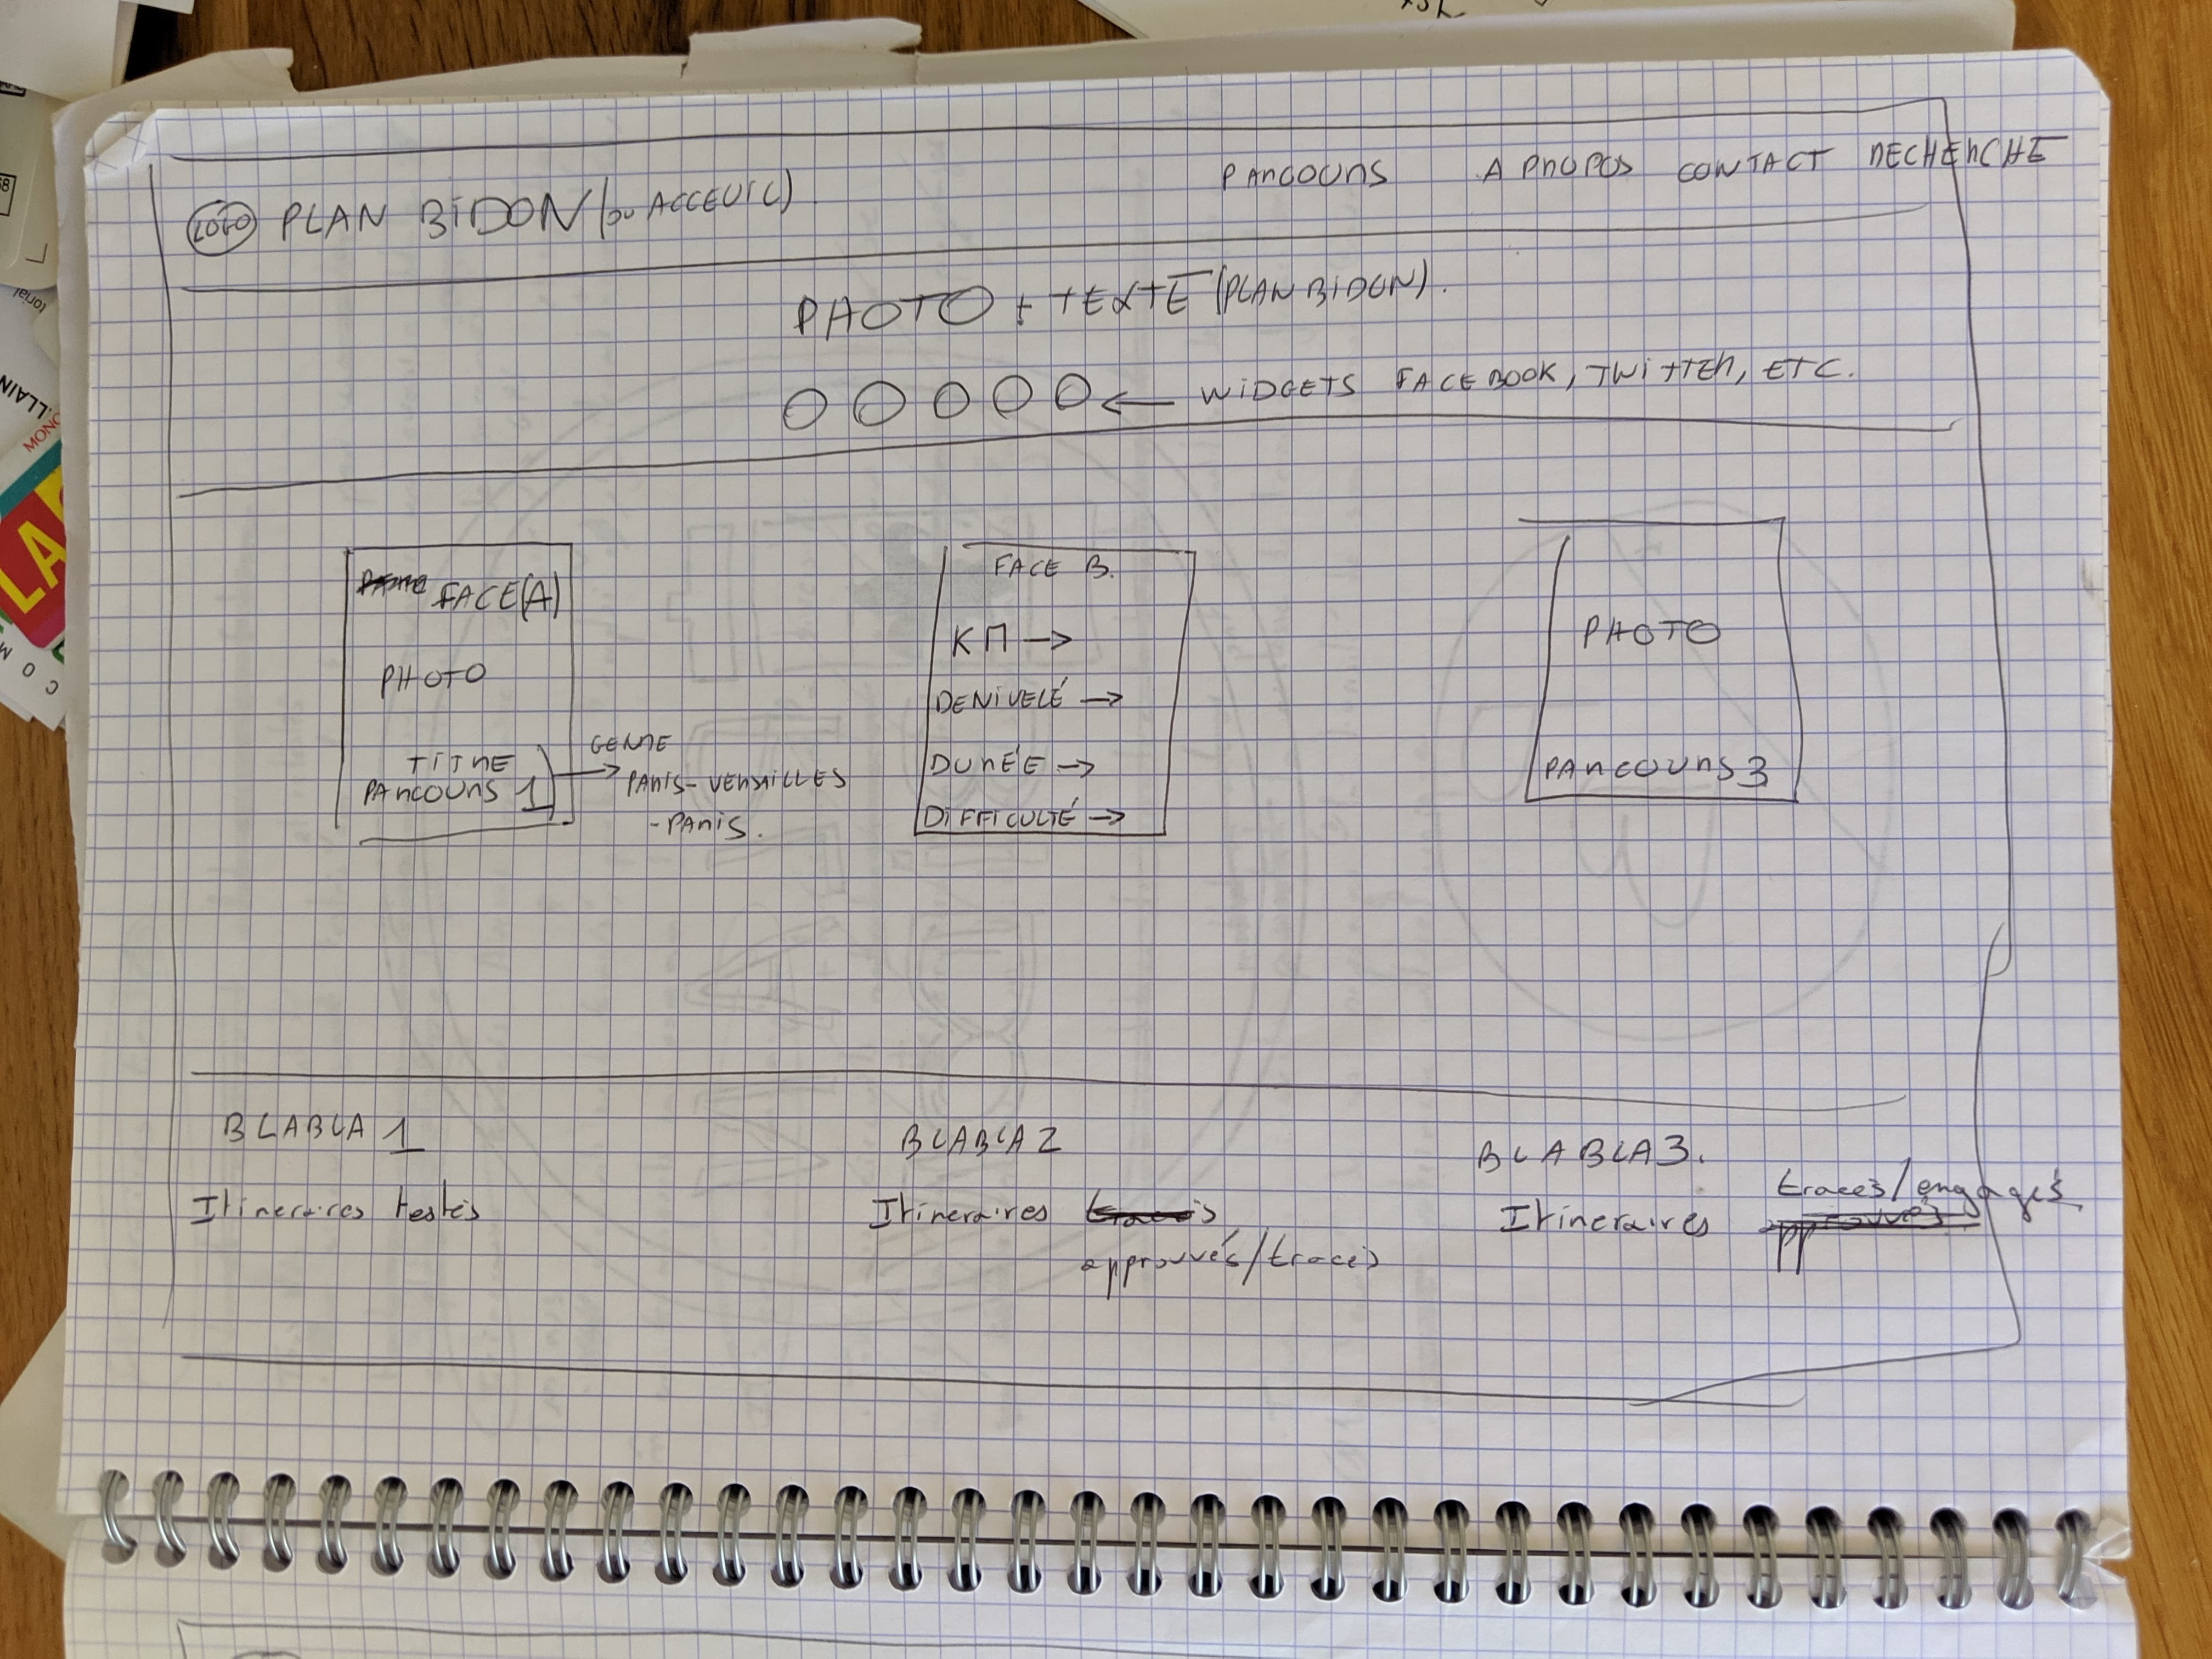 LOGO PLAN BIDON (ou ACCEUIL)
PARCOURS A PROPOS CONTACT RECHERCHE
PHOTO + TEXTE (PLAN BIDON).
WIDGETS FACEBOOK, TWITTER, ETC.
FACE(A)
PHOTO
TITRE
PARCOURS 1
GENRE
PARIS-VERSAILLES
-PARIS.
FACE B.
KM →
DENIVELÉ →
DURÉE →
DIFFICULTÉ →
PHOTO
PARCOURS 3
BLABLA 1
Itineraires testés
BLABLA 2
Itineraires tracés
approuvés/tracés
BLABLA 3.
tracés/engagés
Itineraires approuvés
LA
MONO
torial